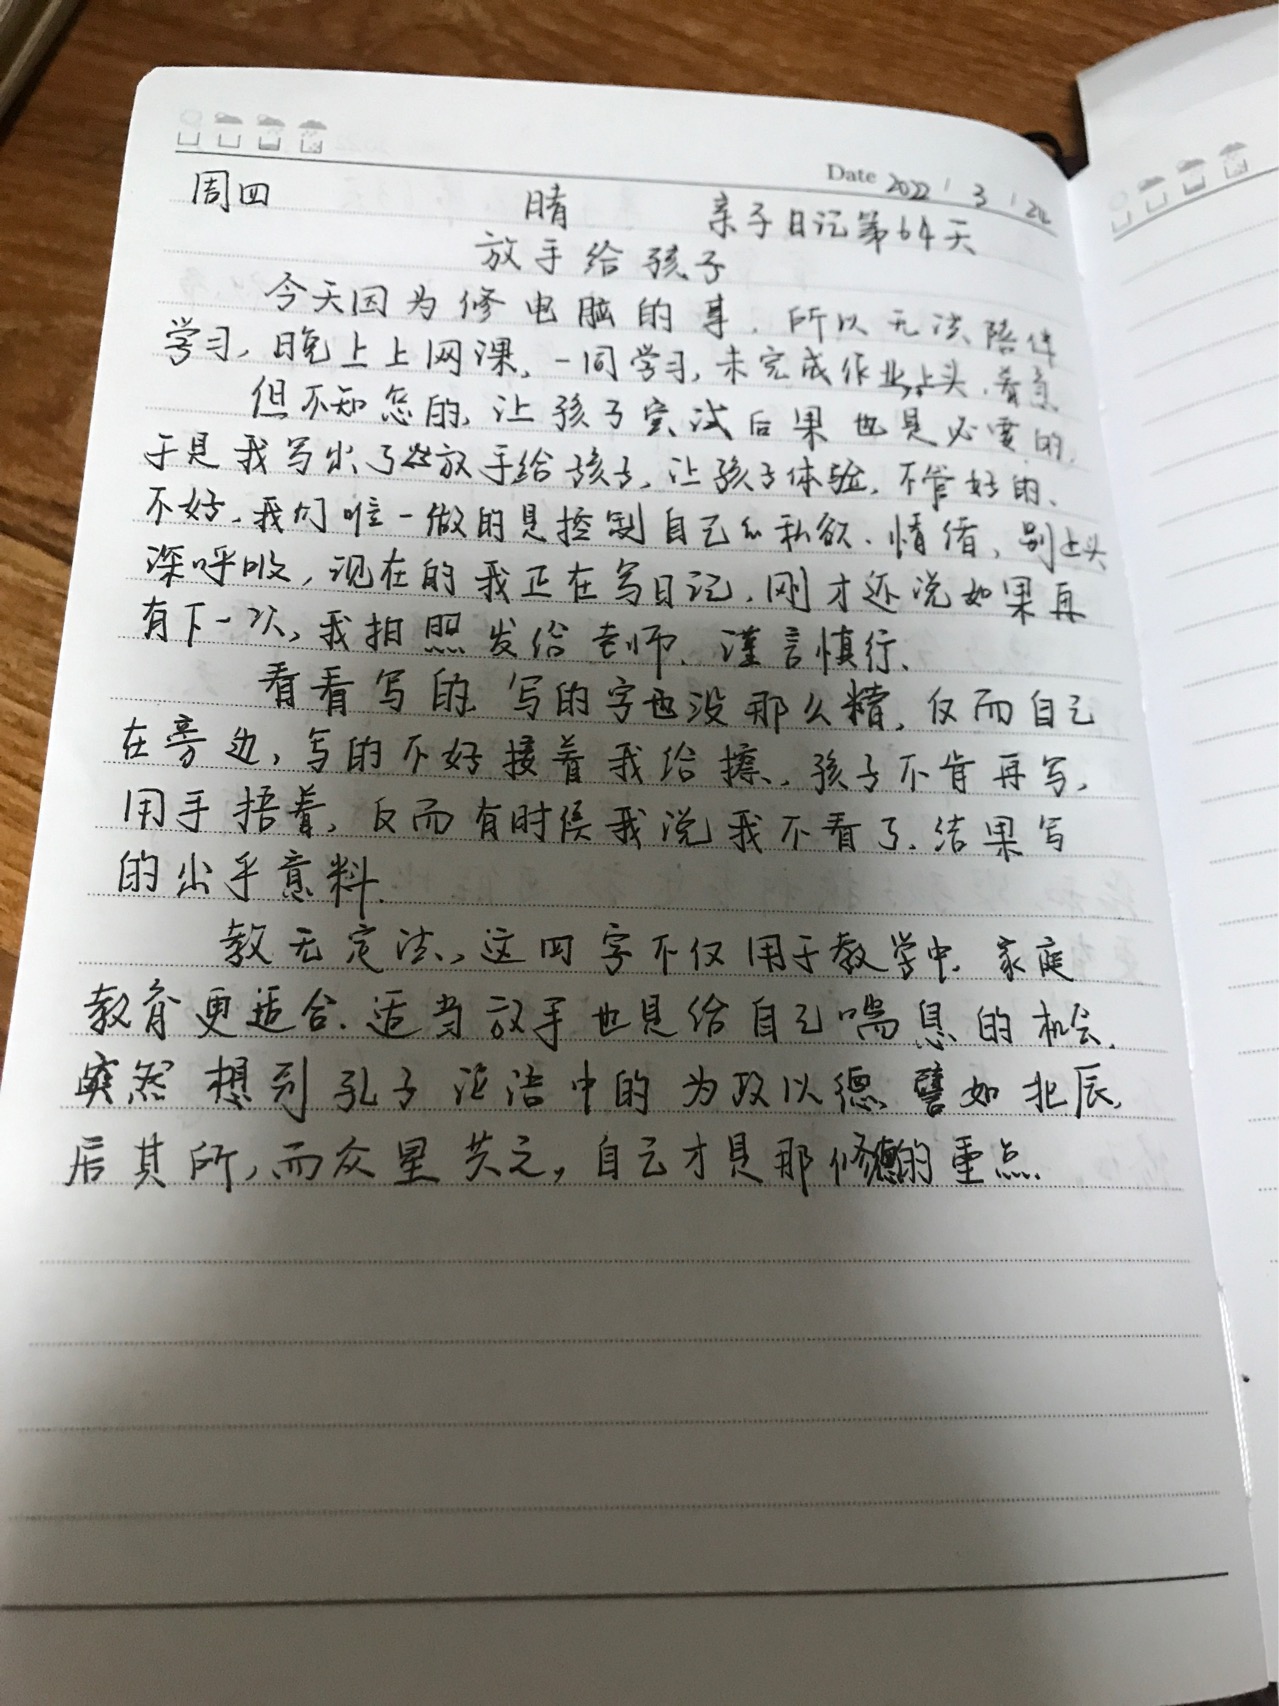 Date 2022 / 3 / 24
周四 晴 亲子日记第64天
放手给孩子
今天因为修电脑的事.所以无法陪伴
学习,晚上上网课,一同学习,未完成作业,上头.着急
但不知怎的,让孩子尝试后果也是必要的,
于是我写出了放手给孩子,让孩子体验,不管好的、
不好,我们唯一做的是控制自己的私欲、情绪,别上头
深呼吸,现在的我正在写日记,刚才还说如果再
有下一次,我拍照发给老师、谨言慎行、
看看写的,写的字也没那么精,仅而自己
在旁边,写的不好接着我给擦,孩子不肯再写,
用手捂着,反而有时候我说我不看了.结果写
的出乎意料.
教无定法,这四字不仅用于教学中,家庭
教育更适合.适当放手也是给自己喘息的机会.
突然想到孔子论语中的为政以德,譬如北辰,
居其所,而众星共之,自己才是那修德的重点.